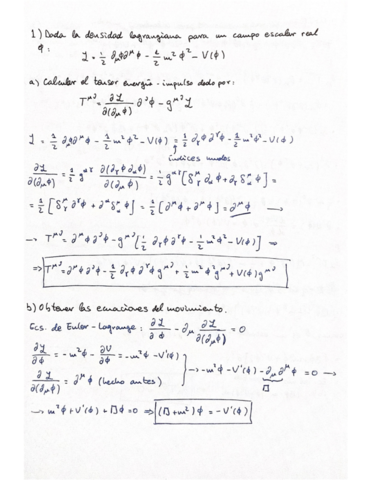 1) Dada la densidad lagrangiana para un campo escalar real
ϕ: ℒ = 1/2 ∂_μϕ∂^μϕ - 1/2 m²ϕ² - V(ϕ)
a) Calcular el tensor energía-impulso dado por:
T^{μν} = ∂ℒ/∂(∂_μϕ) ∂^νϕ - g^{μν}ℒ
ℒ = 1/2 ∂_μϕ∂^μϕ - 1/2 m²ϕ² - V(ϕ) = 1/2 ∂_γϕ∂^γϕ - 1/2 m²ϕ² - V(ϕ)
índices mudos
∂ℒ/∂(∂_μϕ) = 1/2 g^{αγ} ∂(∂_γϕ∂_αϕ)/∂(∂_μϕ) = 1/2 g^{αγ}[δ^μ_γ ∂_αϕ + ∂_γϕ δ^μ_α] =
= 1/2 [δ^μ_γ ∂^γϕ + ∂^αϕ δ^μ_α] = 1/2 [∂^μϕ + ∂^μϕ] = ∂^μϕ →
→ T^{μν} = ∂^μϕ∂^νϕ - g^{μν}[1/2 ∂_γϕ∂^γϕ - 1/2 m²ϕ² - V(ϕ)] ⇒
⇒ T^{μν} = ∂^μϕ∂^νϕ - 1/2 ∂_γϕ∂^γϕ g^{μν} + 1/2 m²ϕ² g^{μν} + V(ϕ)g^{μν}
b) Obtener las ecuaciones del movimiento.
Ecs. de Euler-Lagrange: ∂ℒ/∂ϕ - ∂_μ ∂ℒ/∂(∂_μϕ) = 0
∂ℒ/∂ϕ = -m²ϕ - ∂V/∂ϕ = -m²ϕ - V'(ϕ)
∂ℒ/∂(∂_μϕ) = ∂^μϕ (hecho antes)
→ -m²ϕ - V'(ϕ) - ∂_μ∂^μϕ = 0 →
□
→ m²ϕ + V'(ϕ) + □ϕ = 0 ⇒ (□ + m²)ϕ = -V'(ϕ)